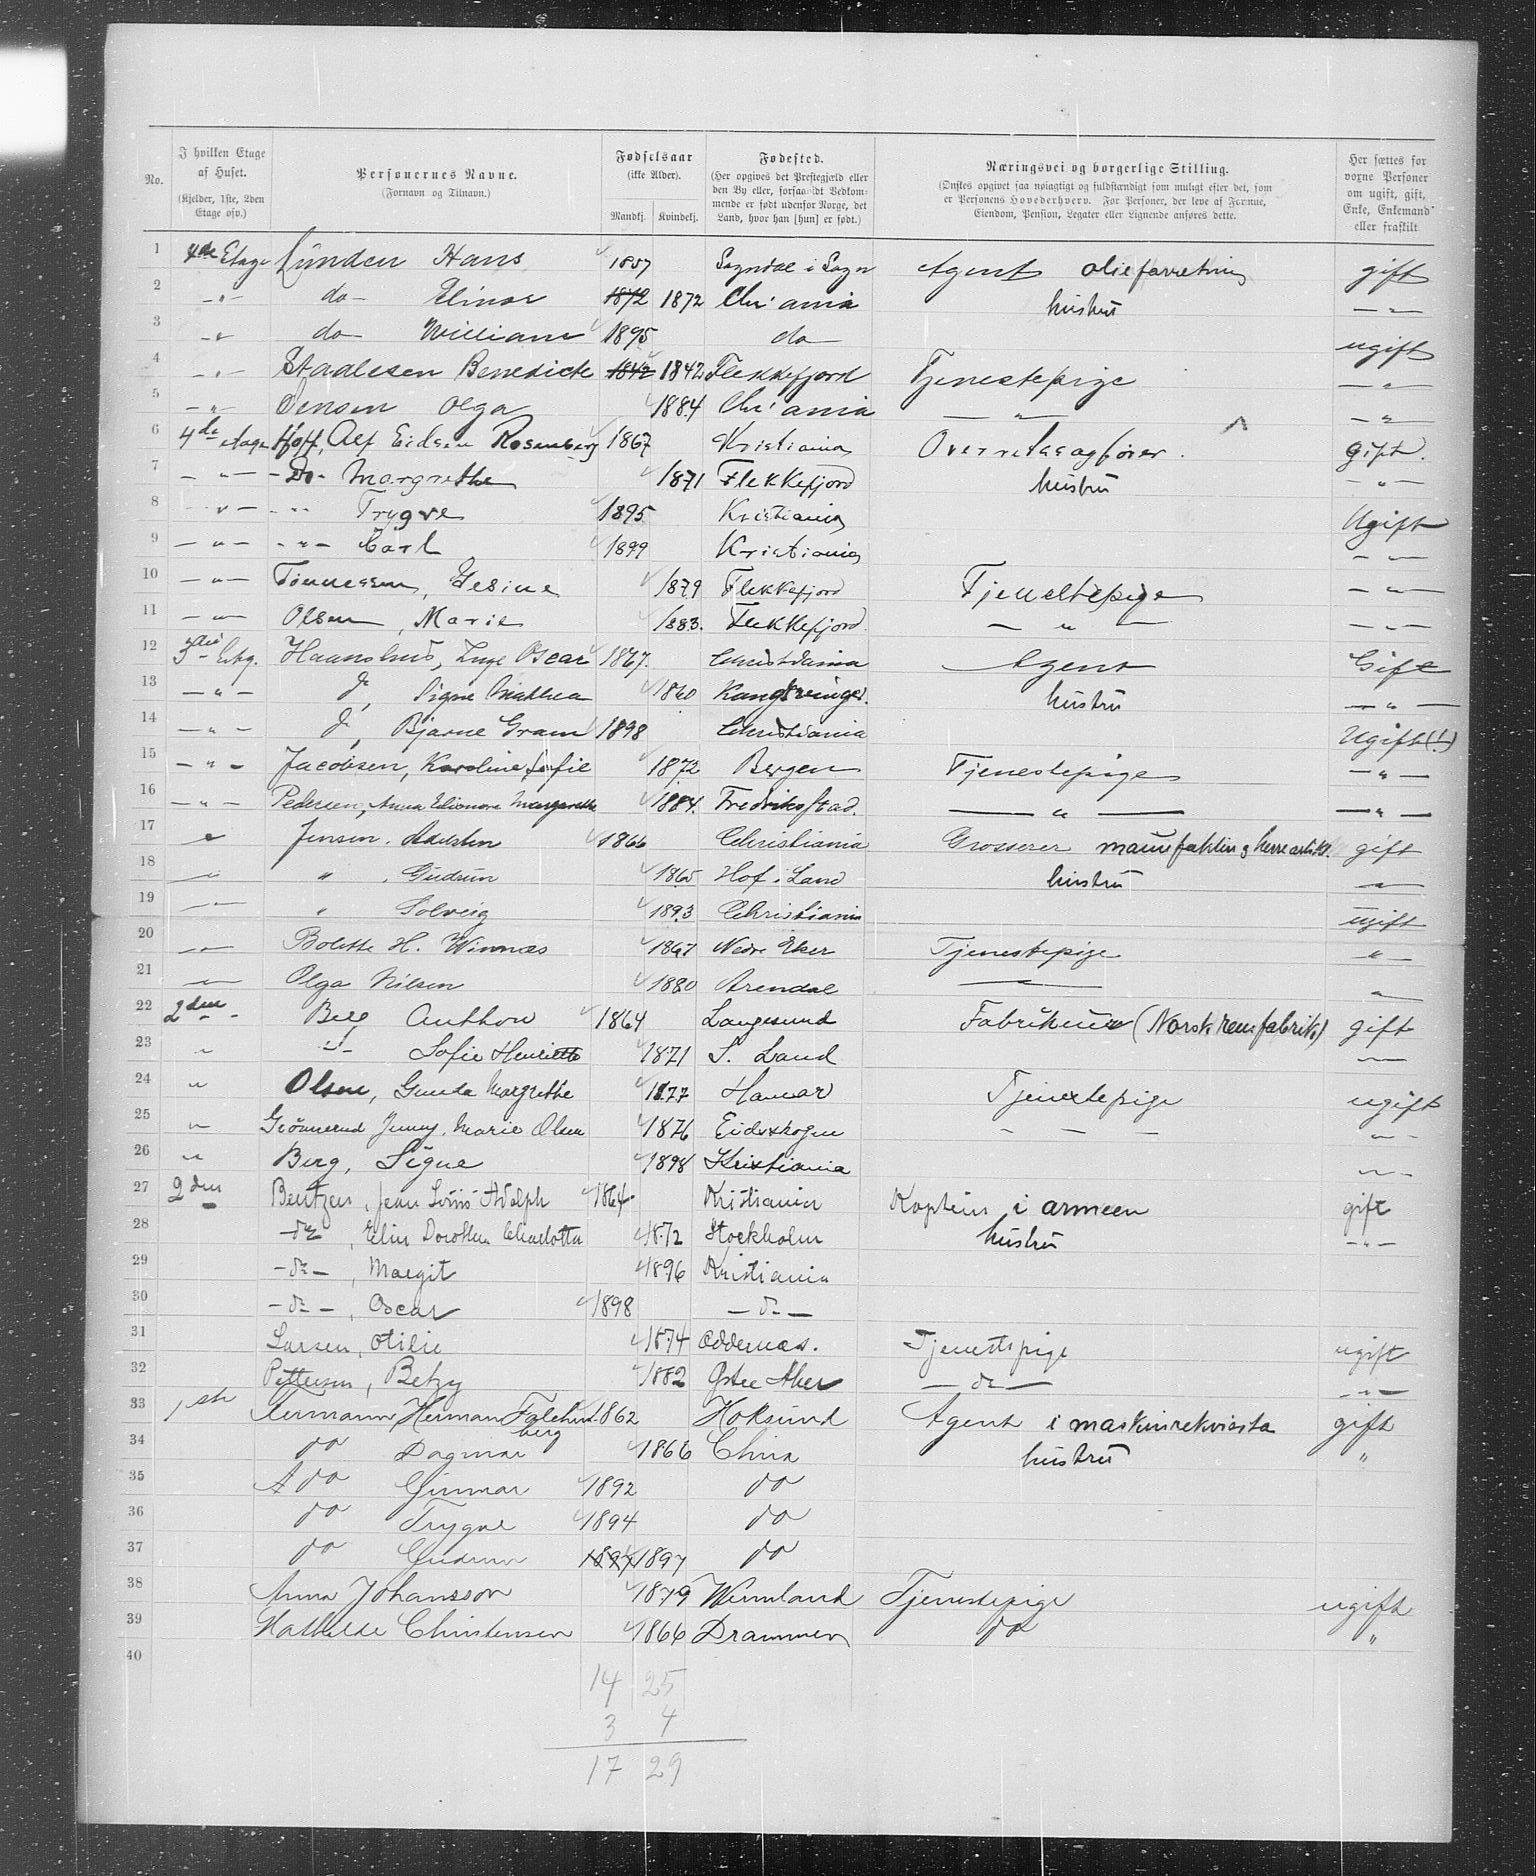 No. | I hvilken Etage af Huset. (Kjelder, 1ste, 2den Etage osv.) | Personernes Navne. (Fornavn og Tilnavn.) | Fødselsaar (ikke Alder). Mandkj. Kvindekj. | Fødested. (Her opgives det Prestegjæld eller den By eller, forsaavidt Vedkommende er født udenfor Norge, det Land, hvor han [hun] er født.) | Næringsvei og borgerlige Stilling. (Ønskes opgivet saa nøiagtigt og fuldstændigt som muligt efter det, som er Personens Hovederhverv. For Personer, der leve af Formue, Eiendom, Pension, Legater eller Lignende anføres dette. | Her sættes for voxne Personer om ugift, gift, Enke, Enkemand eller fraskilt
1 4de Etage Lunden Hans 1857 Sogndal i Sogn Agent olieforretning gift
2 -"- do Elinor 1872 1872 Chr'ania hustru -"-
3 -"- do William 1895 do ugift
4 -"- Stadlesen Benedicte 1842 1842 Flekkefjord Tjenestepige -"-
5 -"- Jensen Olga 1884 Chr'ania -"- -"-
6 4de etage Hoff, Alf Eidsen Rosenberg 1867 Kristiania Overretssagfører. gift.
7 -"- Do- Margrethe 1871 Flekkefjord hustru -"-
8 -"- -"- Trygve 1895 Kristiania Ugift
9 -"- -"- Carl 1899 Kristiania -"-
10 -"- Tönnessen, Gesine 1879 Flekkefjord Tjenestepige -"-
11 -"- Olsen, Marie 1883. Flekkefjord -"- -"-
12 3die Etg. Haanshus, Inge Oscar 1867. Christiania Agent Gift
13 -"- do, Signe Mathea 1860 Kongsvinger. hustru -"-
14 -"- do, Bjarne Gram 1898 Christiania Ugift (!)
15 -"- Jacobsen, Karoline Sofie 1872 Bergen Tjenestepige -"-
16 -"- Pedersen, Anna Elionore Margarethe 1884. Fredrikstad. -"- -"-
17 " Jensen. 1866 Christiania Grosserer manufaktur g herreartikl. gift
18 " " . Gudrun 1865 Hof i Land hustru "
19 " " Solveig 1893 Christiania ugift
20 " Bolette H. Winnæs 1867 Nedre Eker Tjenestepige "
21 " Olga Nilsen 1880 Arendal — "
22 2den Bell Anthon 1864 Langesund Fabrikeier (Norsk rensfabrik) gift
23 " -"- Sofie Henriette 1871 S. Land "
24 " Olsen, Gunda Margrethe 1877 Hamar Tjenestepige ugift
25 " Grönnerud Jenny, Marie Olsen 1876 Eidskogen - - - "
26 " Berg, Signe 1898 Kristiania "
27 2den Bentzen, Jean Louis Adolph 1864. Kristiania Kaptein i armeen gift
28 -do-, Elin Dorothea Charlotta 1872 Stockholm hustru -"-
29 -do-, Margit 1896 Kristiania
30 -do-, Oscar 1898 -do-
31 Larsen, Otilie 1874 Oddernæs. Tjenestepige ugift
32 Pettersen, Betzy 1882 Østre Aker -do- -"-
33 1ste Herman Falchenberg 1862 Hoksund Agent i maskinrekvisita gift
34 do Dagmar 1866 China hustru "
35 do Gunnar 1892 do
36 do Trygve 1894 do
37 do Gudrun 1897 1897 do
38 Anna Johansson 1879 Wermland Tjenestepige ugift
39 Mathilde Christensen 1866 Drammen do "
40
14 25
3 4
17 29